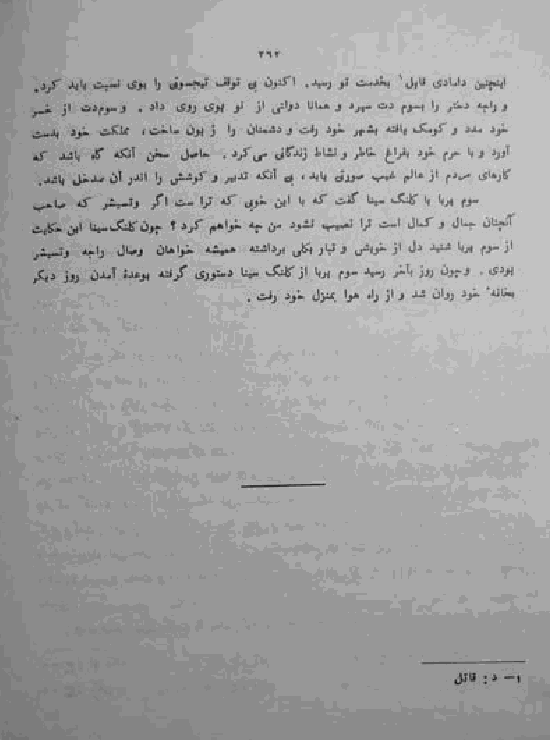 ۲۹۲
اینچنین دامادی قابل۱ بخدمت تو رسید. اکنون بی توقف تیجسوتی را بوی نسبت باید کرد.
و راجه دختر را بسوم دت سپرد و همانا دولتی از نو بوی روی داد. و سومدت از خسر
خود مدد و کومک یافته بشهر خود رفت و دشمنان را زبون ساخت، مملکت خود بدست
آورد و با حرم خود بفراغ خاطر و نشاط زندگانی می کرد. حاصل سخن آنکه گاه باشد که
کارهای مردم از عالم غیب صورتی یابد، بی آنکه تدبیر و کوشش را اندر آن مدخل باشد.
سوم پربا با کلنگ سینا گفت که با این خوبی که تراست اگر وتسیشر که صاحب
آنچنان جمال و کمال است ترا نصیب نشود من چه خواهم کرد؟ چون کلنگ سینا این حکایت
از سوم پربا شنید دل از خویش و تبار بکلی برداشته همیشه خواهان وصال راجه وتسیشر
بودی. و چون روز بآخر رسید سوم پربا از کلنگ سینا دستوری گرفته بوعدهٔ آمدن روز دیگر
بخانه خود روان شد و از راه هوا بمنزل خود رفت.
۱- د: قائل